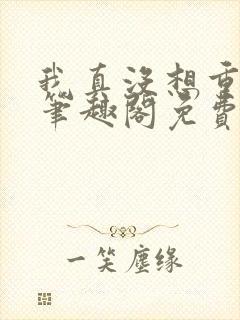 我真没想重
笔趣阁免费
一笑尘缘